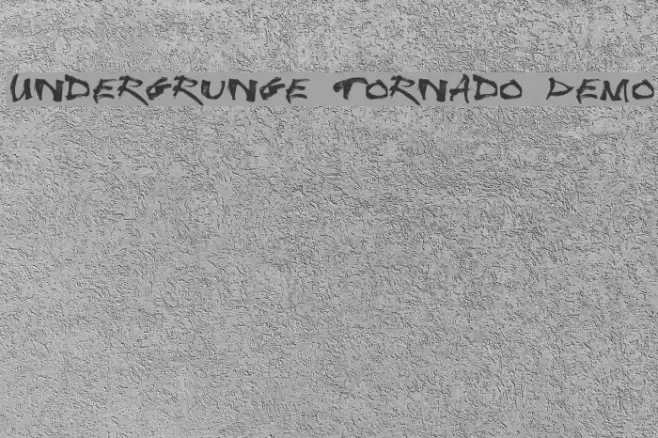 Undergrunge Tornado Demo